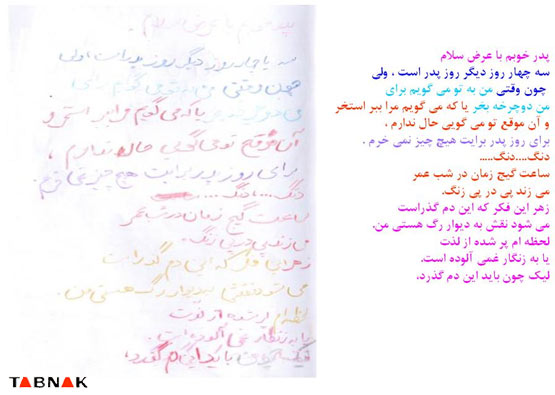 پدر خوبم با عرض سلام
سه چهار روز دیگر روز پدر است ، ولی
چون وقتی من به تو می گویم برای
من دوچرخه بخر یا که می گویم مرا ببر استخر
و آن موقع تو می گویی حال ندارم ،
برای روز پدر برایت هیچ چیز نمی خرم .
دنگ....دنگ.....
ساعت گیج زمان در شب عمر
می زند پی در پی زنگ.
زهر این فکر که این دم گذراست
می شود نقش به دیوار رگ هستی من.
لحظه ام پر شده از لذت
یا به زنگار غمی آلوده است.
لیک چون باید این دم گذرد،
پدر خوبم با عرض سلام .
سه یا چهار روز دیگر روز پدر است ولی
چون وقتی من به تو می گویم برای
یا که می گویم مرا ببر استخر و
آن موقع تو می گویی حال ندارم ،
برای روز پدر برایت هیچ چیز نمی خرم .
دنگ...دنگ...
ساعت گیج زمان در شب عمر
می زند پی در پی زنگ .
زهر این فکر که این دم گذر است
می شود نقش به دیوار رگ هستی من .
لحظه ام پر شده از لذت
یا به زنگار غمی آلوده است .
لیک چون باید این دم گذرد،
TABNAK